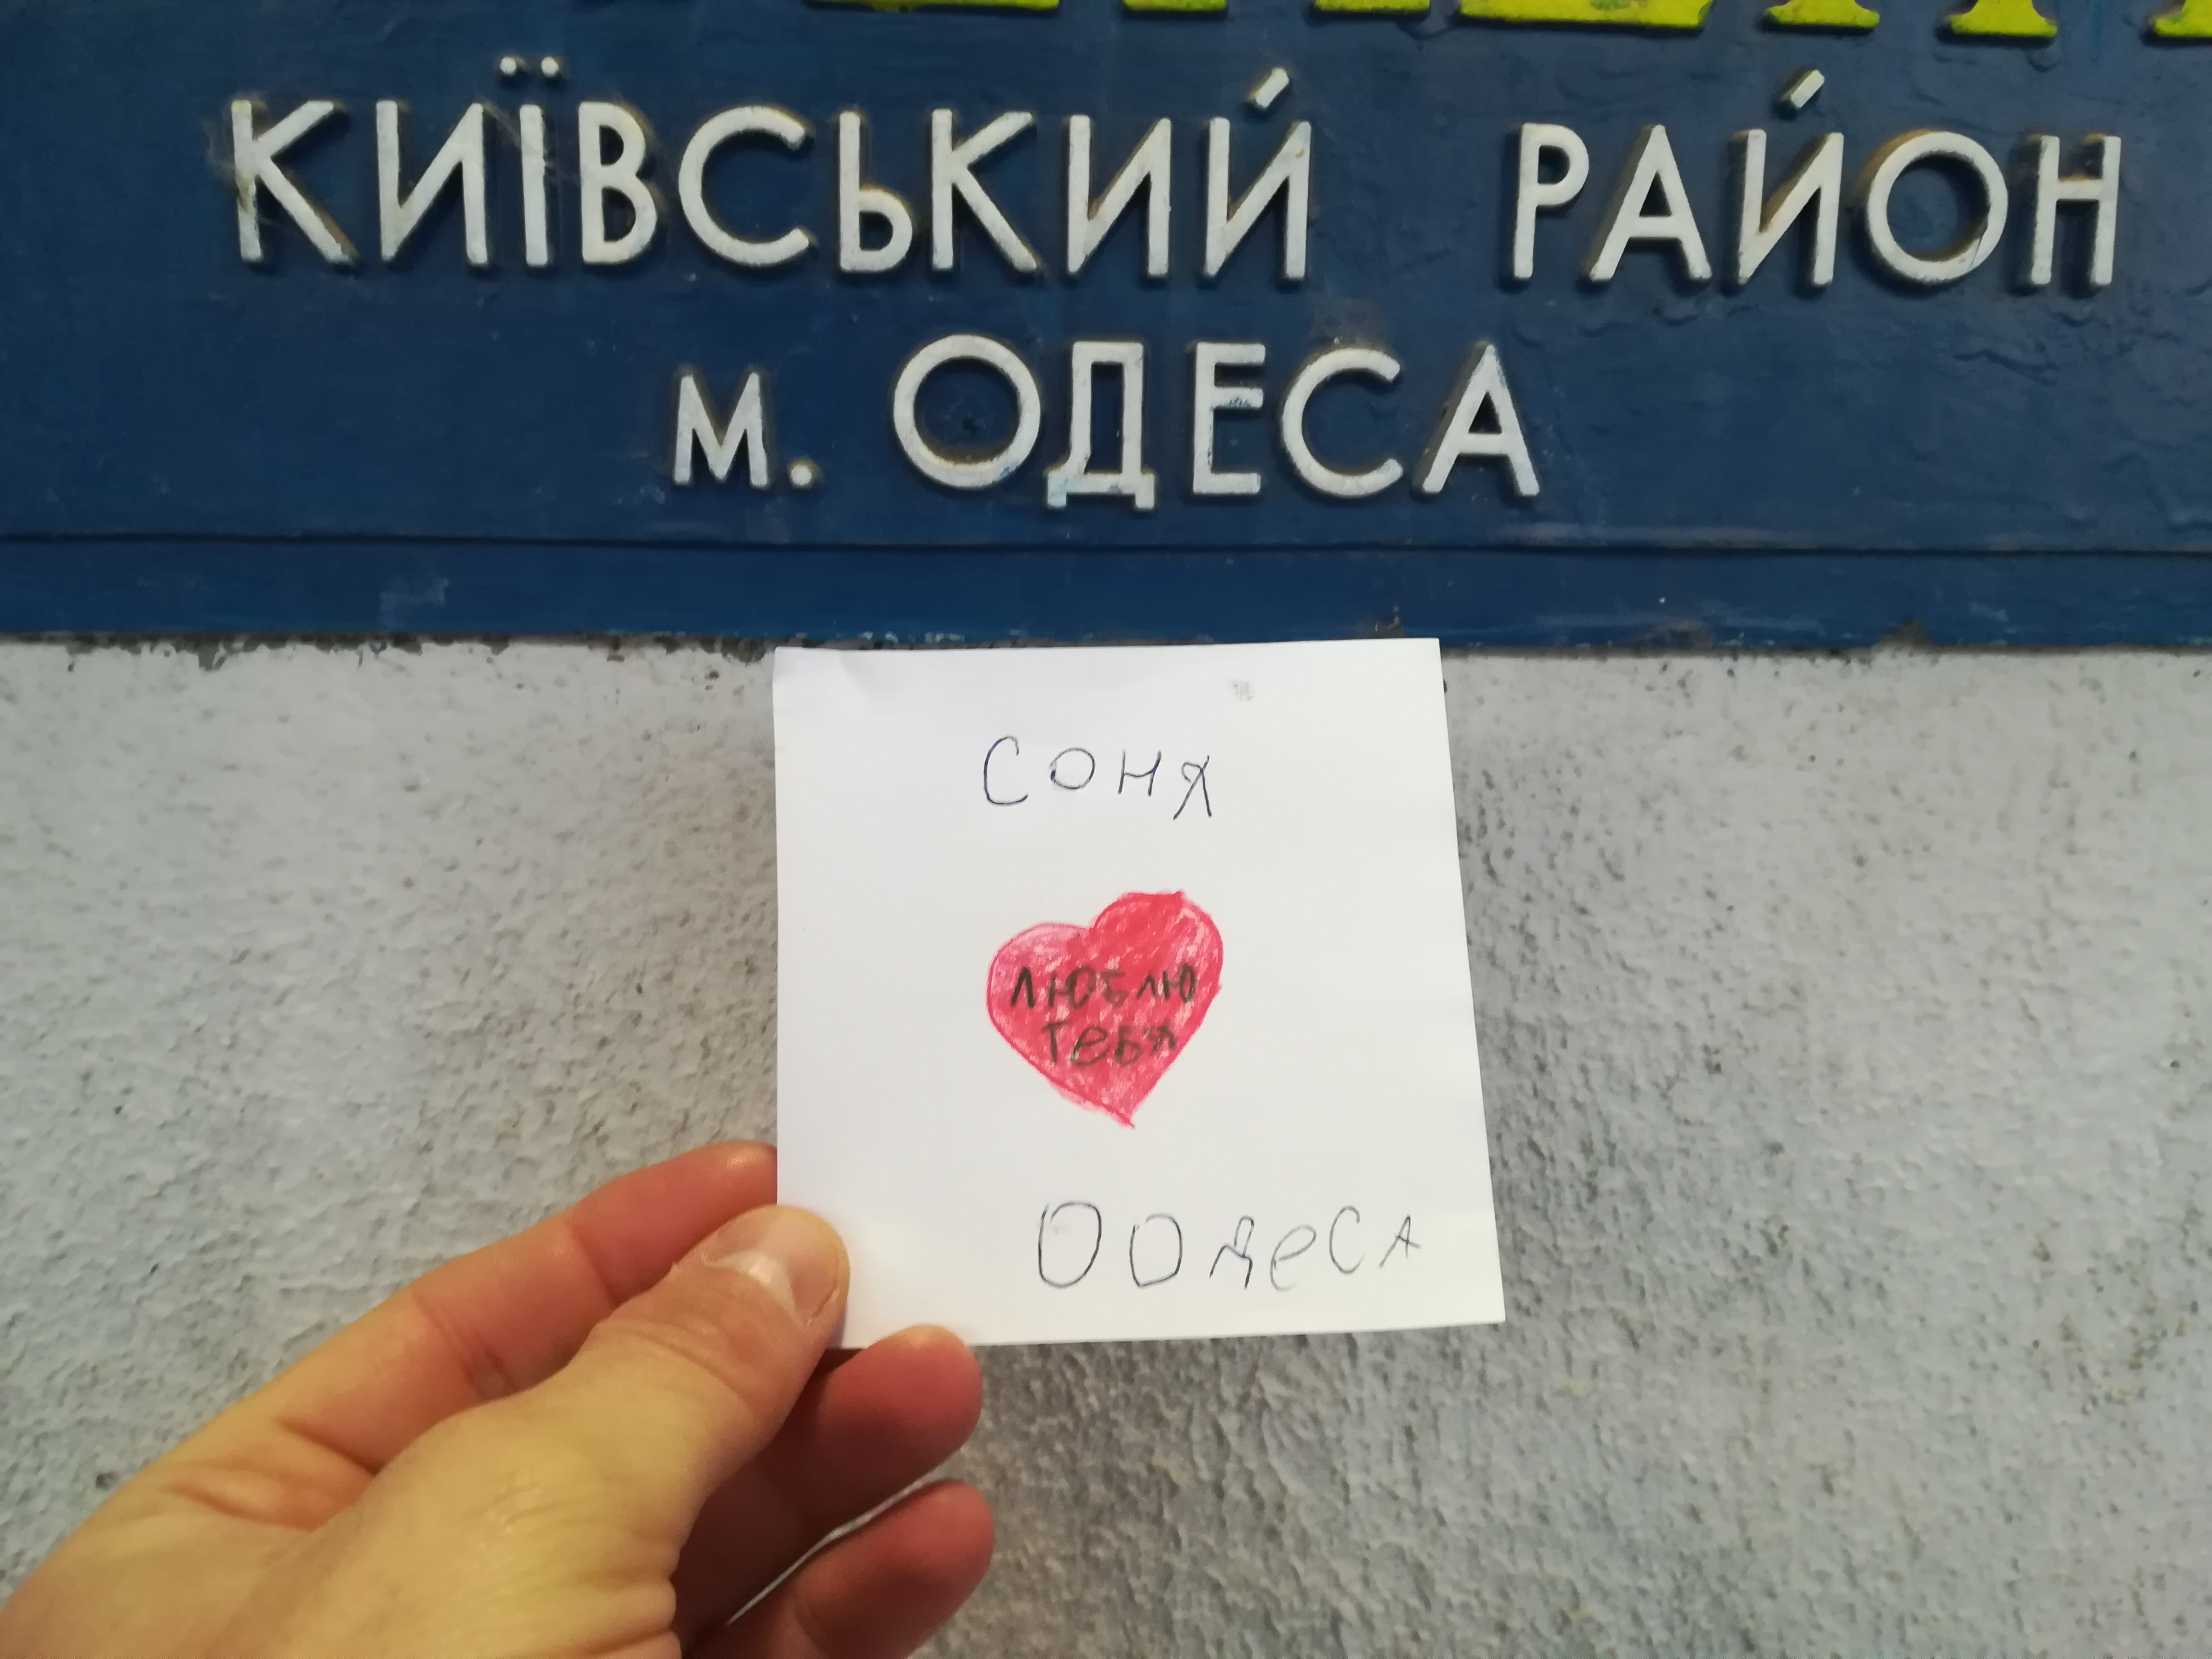 КИЇВСЬКИЙ РАЙОН
м. ОДЕСА
СОНЯ
ЛЮБЛЮ
ТЕБЯ
ООДЕСА